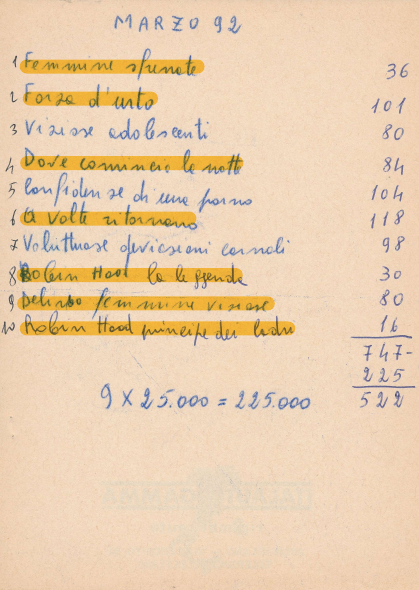 MARZO 92
1 Femmine sfrenate 36
2 Forza d'urto 101
3 Viziose adolescenti 80
4 Dove comincia la notte 84
5 Confidenze di una porno 104
6 A volte ritornano 118
7 Voluttuose deviazioni carnali 98
8 Robin Hood la leggenda 30
9 Delirio femmine viziose 80
10 Robin Hood principe dei ladri 16
747-
225
9 X 25.000 = 225.000 522